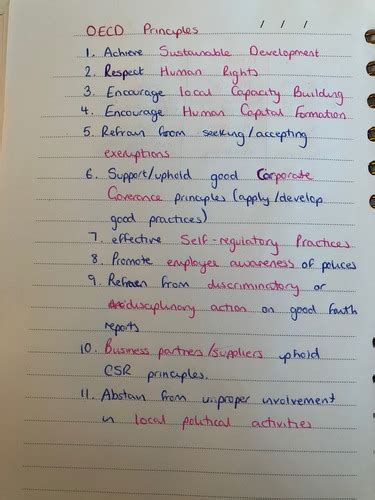 OECD Principles / / /
1. Achieve Sustainable Development
2. Respect Human Rights
3. Encourage local Capacity Building
4. Encourage Human Capital Formation
5. Refrain from seeking/accepting
exemptions
6. Support/uphold good Corporate
Goverance principles (apply/develop
good practices)
7. effective Self-regulatory Practices
8. Promote employee awareness of polices
9. Refrain from discriminatory or
disciplinary action on good faith
reports
10. Business partners/suppliers uphold
CSR principles.
11. Abstain from improper involvement
in local political activities